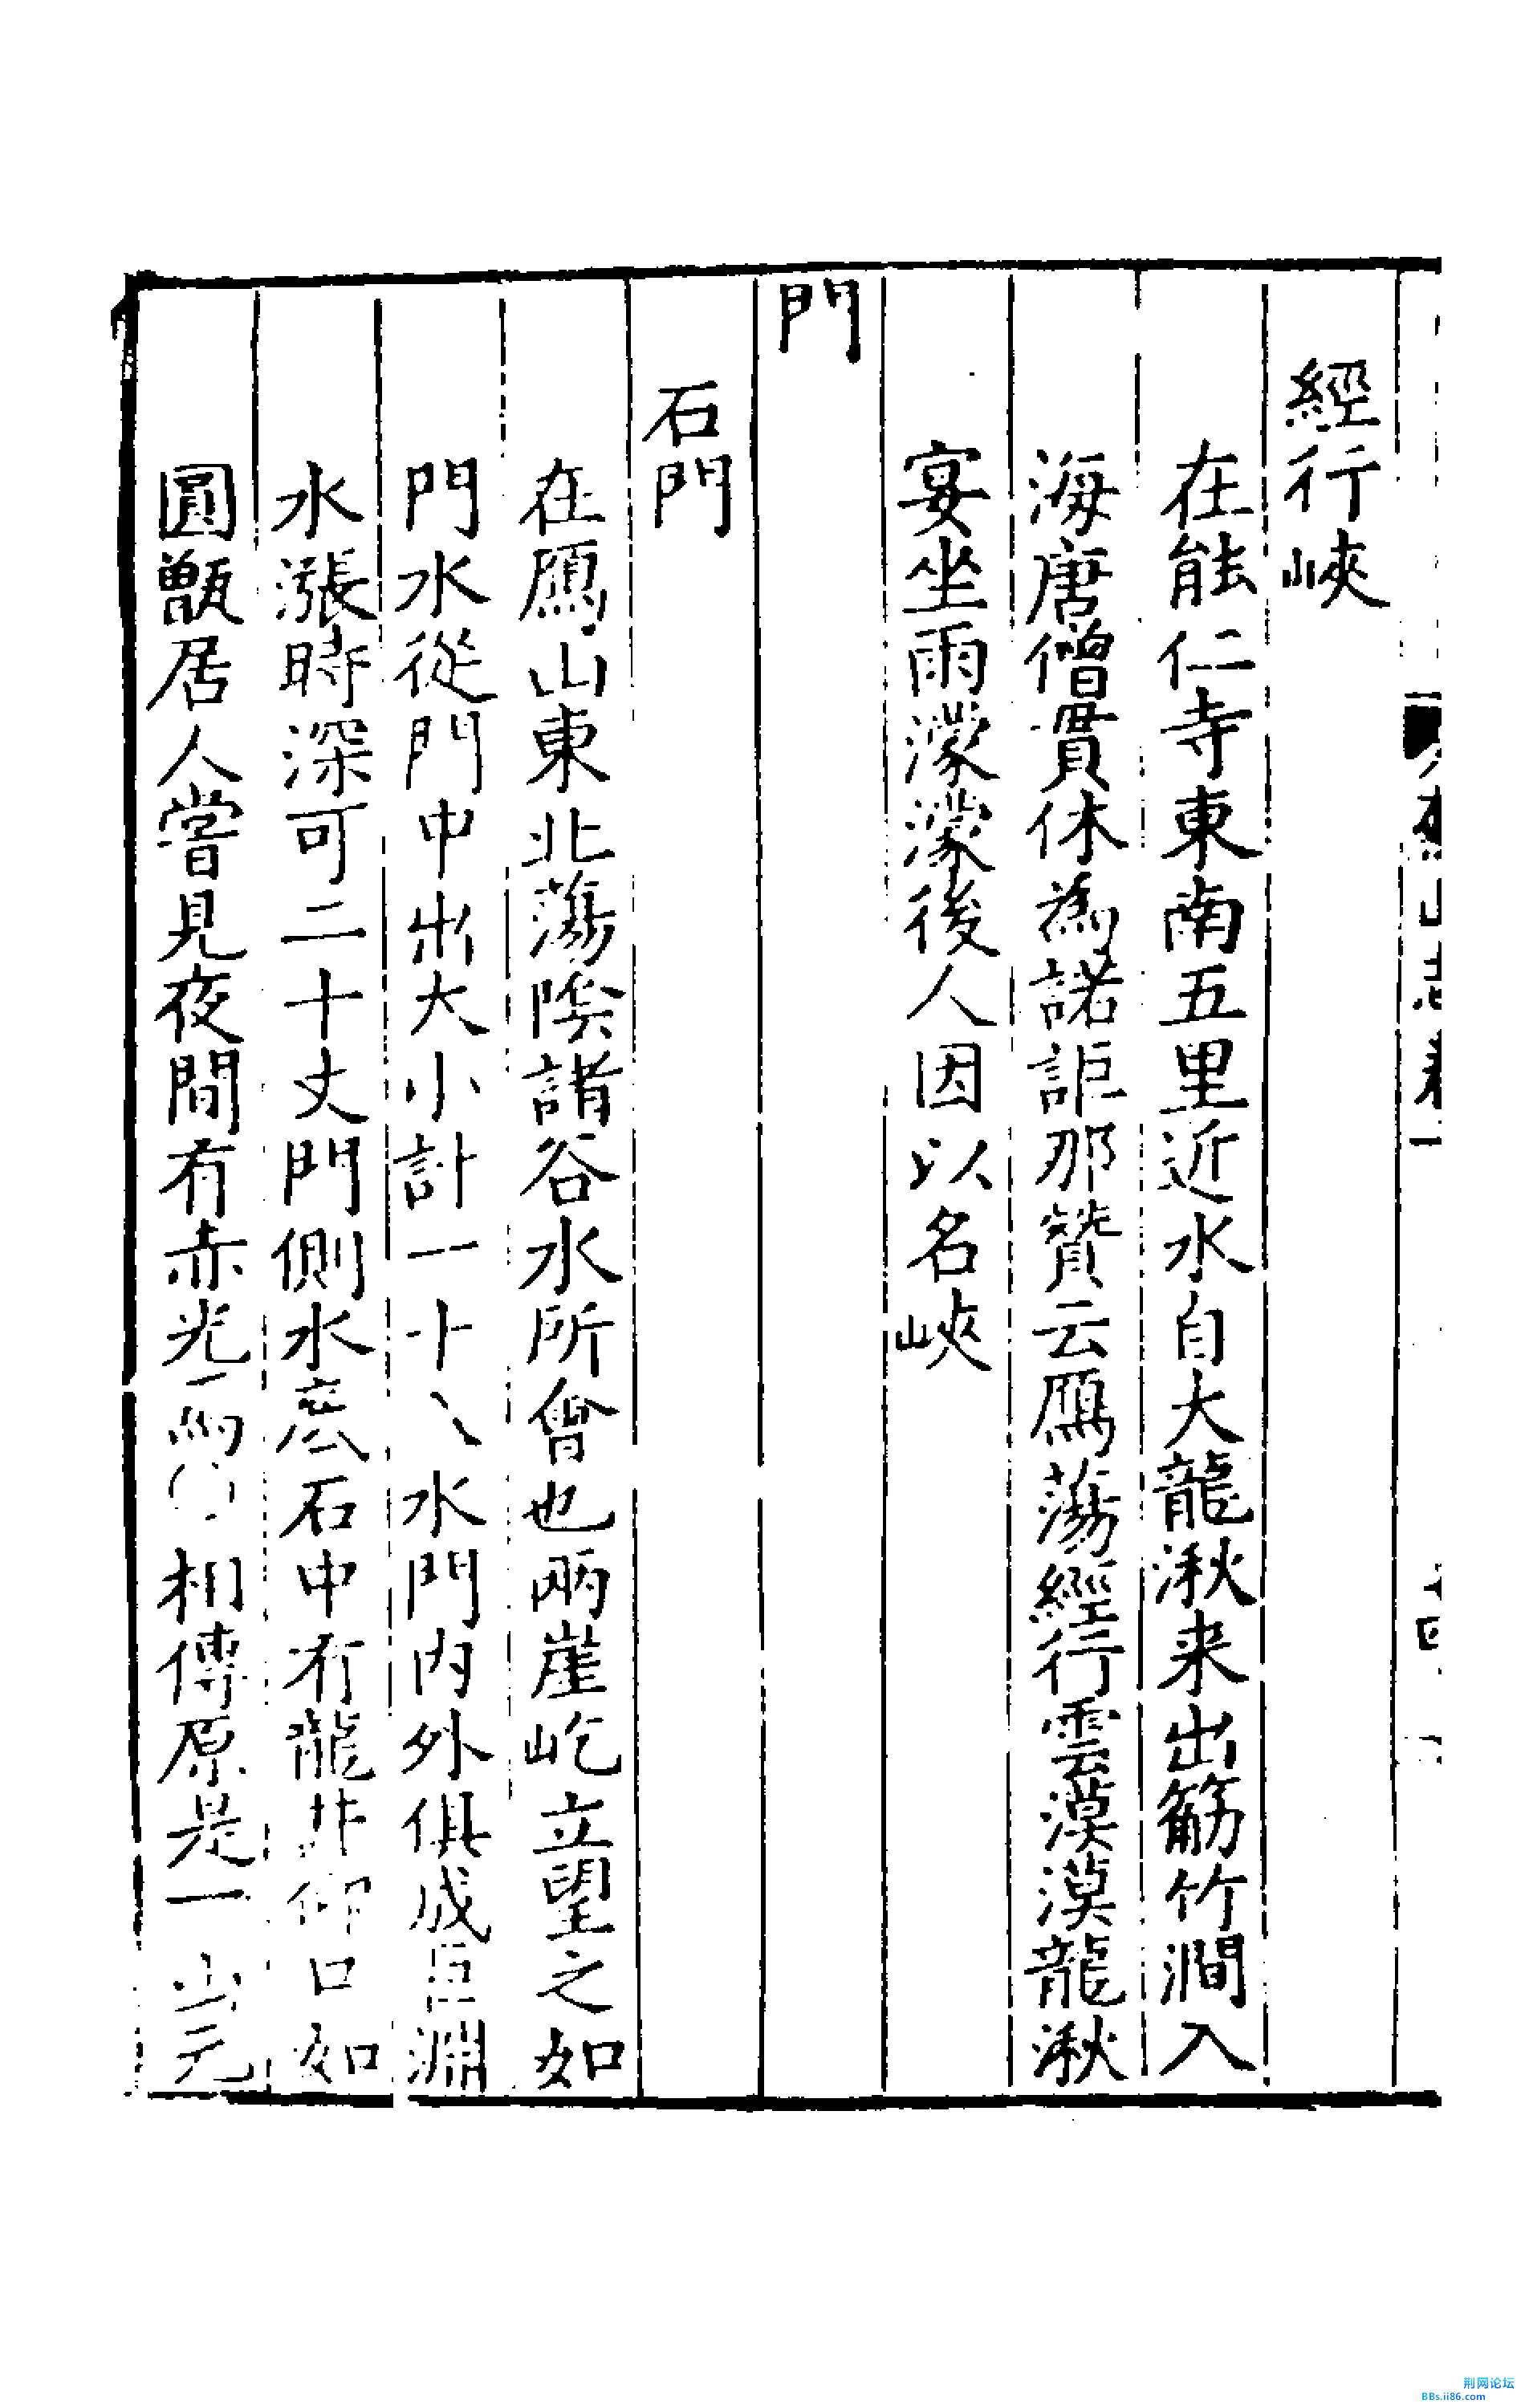 經行峽
在能仁寺東南五里近水自大龍湫来出筋竹澗入
海唐僧貫休為諾詎那贊云鴈蕩經行雲漠漠龍湫
宴坐雨濛濛後人因以名峽
門
石門
在鴈山東北蕩陰諸谷水所會也兩崖屹立望之如
門水從門中出大小計一十八水門內外俱成巨淵
水漲時深可二十丈門側水底石中有龍井仰口如
圓甑居人嘗見夜間有赤光 相傳原是一山元
山志卷一
荆网论坛
BBs.ii86.com